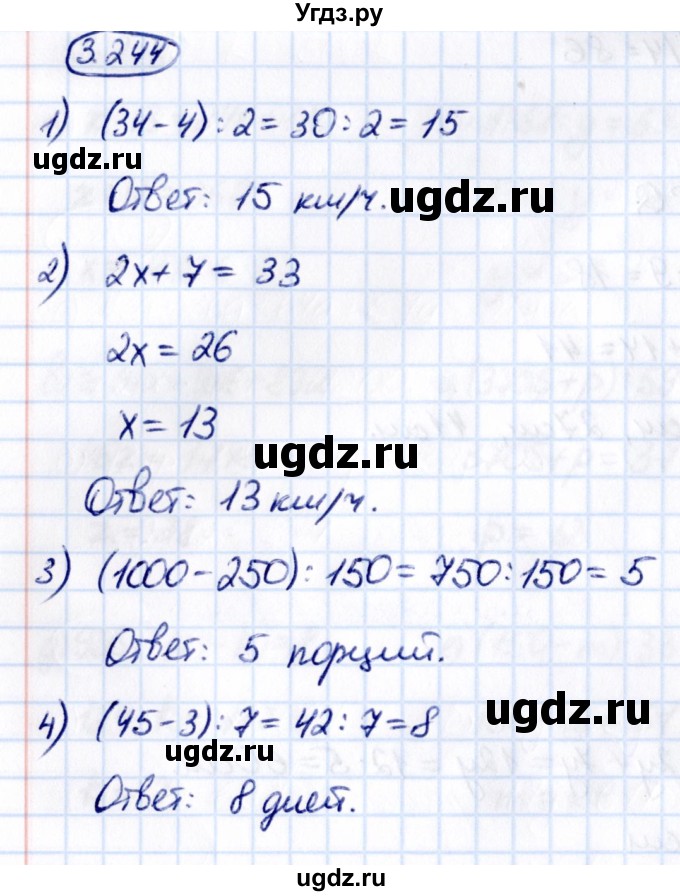 Угдз.ру
3.244
1) (34-4):2=30:2=15
ugdz.ru
Ответ: 15 км/ч. ugdz.ru
2) 2x+7=33
2x=26
x=13
ugdz.ru
Ответ: 13 км/ч.
3) (1000-250):150=750:150=5
Ответ: 5 порций.
ugdz.ru
4) (45-3):7=42:7=8
ugdz.ru
Ответ: 8 дней.
ugdz.ru